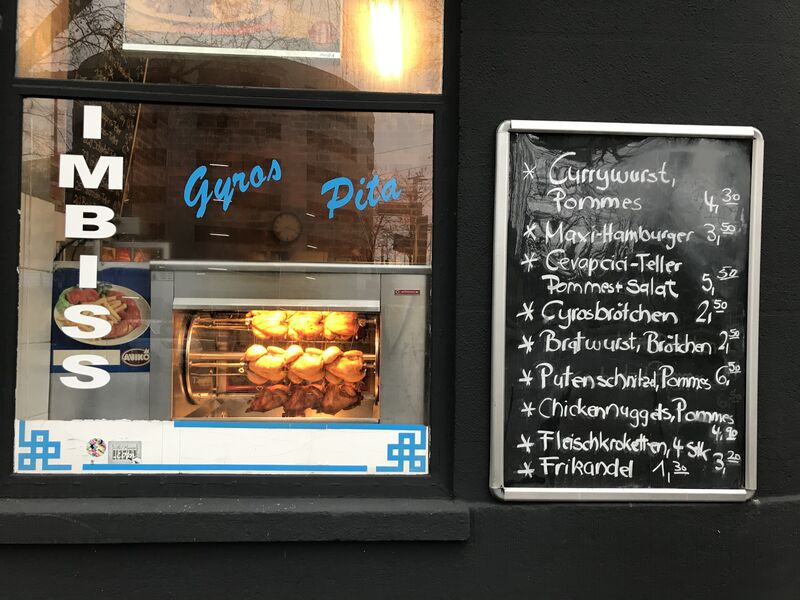 IMBISS
Gyros Pita
AVIKO
* Currywurst,
Pommes 4,30
* Maxi-Hamburger 3,50
* Cevapcici-Teller
Pommes+Salat 5,50
* Gyrosbrötchen 2,50
* Bratwurst, Brötchen 2,50
* Putenschnitzel, Pommes 6,50
* Chickennuggets, Pommes
4,90
* Fleischkroketten, 4 Stk 3,20
* Frikandel 1,30